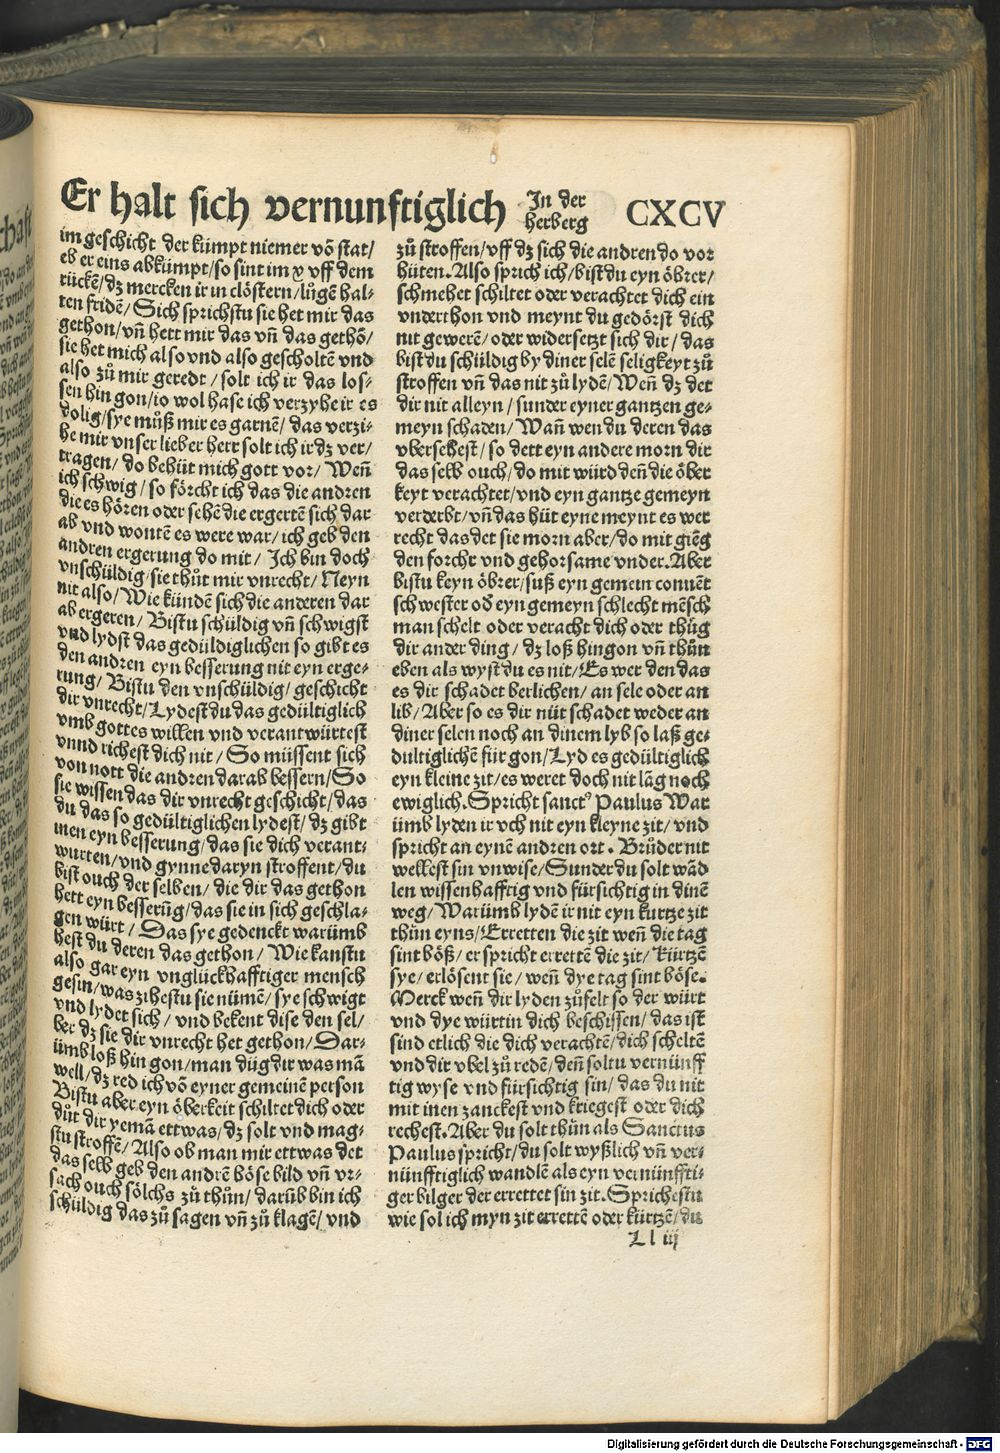 Er halt sich vernunftiglich In der herberg CXCV
im geschicht der kümpt niemer võ stat/
eb er eins abkümpt/so sint im x vff dem
rückẽ/dz mercken ir in clöstern/lůgen hal-
ten fridẽ/Sich sprichstu sie het mir das
gethon/vñ hett mir das vñ das gethõ/
sie het mich also vnd also gescholtẽ vnd
also zů mir geredt/solt ich ir das los-
sen hin gon/io wol hase ich verzyhe ir es
dolig/sye můß mir es garnẽ/das verzi-
he mir vnser lieber herr solt ich ir dz ver/
tragen/do behüt mich gott vor/Weñ
ich schwig/so förcht ich das die andren
die es hören oder sehẽ die ergertẽ sich dar
ab vnd wontẽ es were war/ich geb den
andren ergerung do mit/Ich bin doch
vnschüldig/sie thůt mir vnrecht/Neyn
nit also/Wie kündẽ sich die anderen dar
ab ergeren/Bistu schüldig vñ schwigst
vnd lydst das gedüldiglichen so gibt es
den andren eyn besserung nit eyn erge-
rung/Bistu den vnschüldig/geschicht
dir vnrecht/Lydest du das gedültiglich
vmb gottes willen vnd verantwürtest
vnnd richest dich nit/So müssent sich
von nott die andren darab bessern/So
sie wissen das dir vnrecht geschicht/das
du das so gedültiglichen lydest/dz gibt
inen eyn besserung/das sie dich verant-
wurten/vnd gynne daryn stroffent/du
bist ouch der selben/die dir das gethon
hett eyn besserũg/das sie in sich geschla-
gen würt/Das sye gedenckt warümb
hest du deren das gethon/Wie kanstu
also gar eyn vnglückhafftiger mensch
gesin/was zihestu sie nümẽ/sye schwigt
vnd lydet sich/vnd bekent dise den sel/
ber dz sie dir vnrecht het gethon/Dar-
ümb loß hin gon/man düg dir was mã
well/dz red ich võ eyner gemeinẽ person
Bistu aber eyn öberkeit schiltet dich oder
důt dir yemã ettwas/dz solt vnd mag-
stu stroffẽ/Also ob man mir ettwas det
das selb geb den andrẽ böse bild vñ vr-
sach ouch sölchs zů thůn/darũb bin ich
schüldig das zů sagen vñ zů klagẽ/vnd
zů stroffen/vff dz sich die andren do vor
hüten.Also sprich ich/bist du eyn öbrer/
schmehet schiltet oder verachtet dich ein
vnderthon vnd meynt du gedörst dich
nit gewerẽ/oder widersetzt sich dir/das
bist du schüldig by diner selẽ seligkeyt zů
stroffen vñ das nit zů lydẽ/Weñ dz det
dir nit alleyn/sunder eyner gantzen ge-
meyn schaden/Wañ wen du deren das
vbersehest/so dett eyn andere morn dir
das selb ouch/do mit würd deñ die öber
keyt verachtet/vnd eyn gantze gemeyn
verderbt/vñ das hüt eyne meynt es wer
recht das det sie morn aber/do mit giẽg
den forcht vnd gehorsame vnder.Aber
bistu keyn öbrer/suß eyn gemein conuẽt
schwester oď eyn gemeyn schlecht mẽsch
man schelt oder veracht dich oder thůg
dir ander ding/dz loß hingon vñ thůn
eben als wyst du es nit/Es wer den das
es dir schadet berlichen/an sele oder an
lib/Aber so es dir nüt schadet weder an
diner selen noch an dinem lyb so laß ge-
dultiglichẽ für gon/Lyd es gedültiglich
eyn kleine zit/es weret doch nit lãg noch
ewiglich.Spricht sanctꝰ Paulus War
ümb lyden ir vch nit eyn kleyne zit/vnd
spricht an eynẽ andren ort.Brüder nit
wellest sin vnwise/Sunder du solt wãd
len wissenhafftig vnd fürsichtig in dinẽ
weg/Warümb lydẽ ir nit eyn kurtze zit
thůn eyns/Erretten die zit weñ die tag
sint böß/er spricht errettẽ die zit/Kürtzẽ
sye/erlösent sie/weñ dye tag sint böse.
Merck weñ dir lyden zůfelt so der würt
vnd dye würtin dich beschissen/das ist
sind etlich die dich verachtẽ/dich scheltẽ
vnd dir vbel zů redẽ/deñ soltu vernünff
tig wyse vnd fürsichtig sin/das du nit
mit inen zanckest vnd kriegest oder dich
rechest.Aber du solt thůn als Sanctus
Paulus spricht/du solt wyßlich vñ ver-
nünfftiglich wandlẽ als eyn vernünffti-
ger bilger der errettet sin zit.Sprichestu
wie sol ich myn zit errettẽ oder kürtzẽ/du
Ll iij
Digitalisierung gefördert durch die Deutsche Forschungsgemeinschaft - DFG